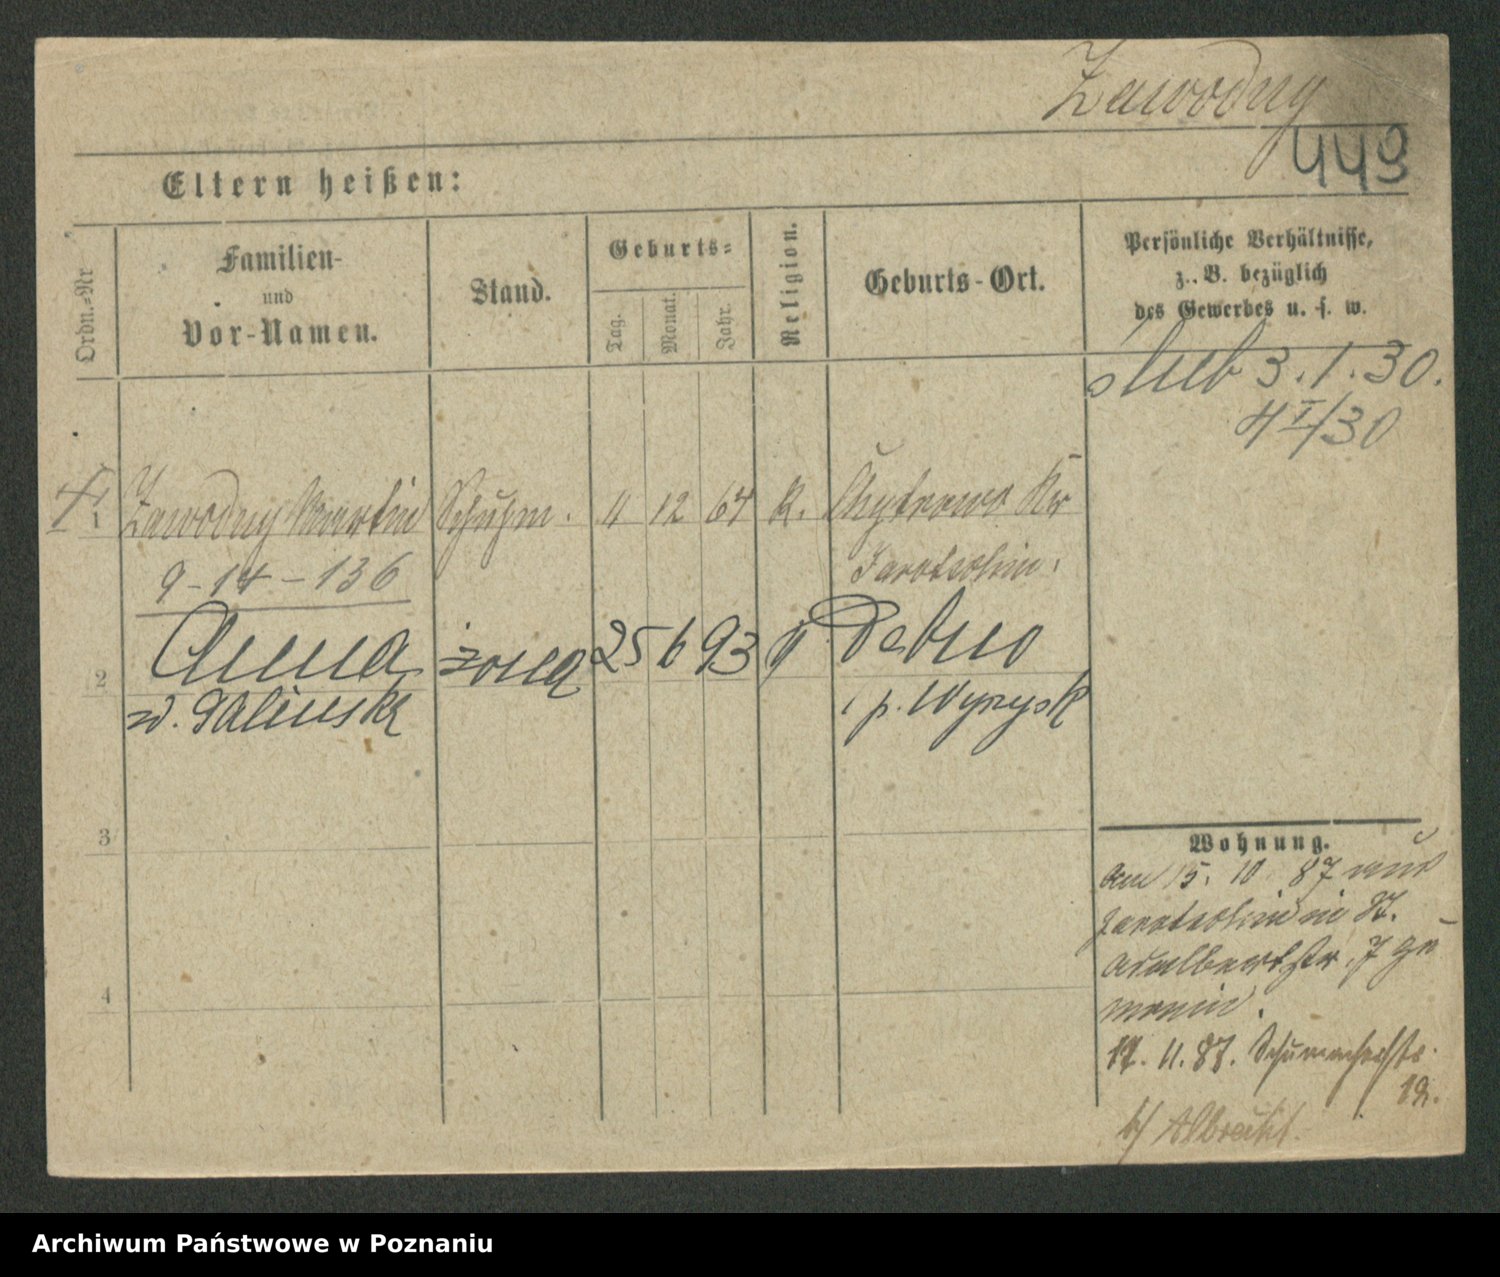 Zawodny
449
Eltern heißen:
Ordn.=Nr
Familien-
und
Vor-Namen.
Stand.
Geburts=
Tag.
Monat.
Jahr.
Religion.
Geburts-Ort.
Persönliche Verhältnisse,
z. B. bezüglich
des Gewerbes u. s. w.
ślub 3.1.30.
4 I/30
1 Zawodny Martin Schuhm. 11 12 64 k. Chytrowo Kr
Jarotschin.
9-14-136
2 Anna żona 25 6 93 Dębno
z d. Galinska p. Wyrzysk
3
4
Wohnung.
Am 15. 10. 87 aus
Jarotschin in St.
Adalbertstr. 7 ge
11. 87. Schumacherstr.
12.
b/ Albrecht.
Archiwum Państwowe w Poznaniu